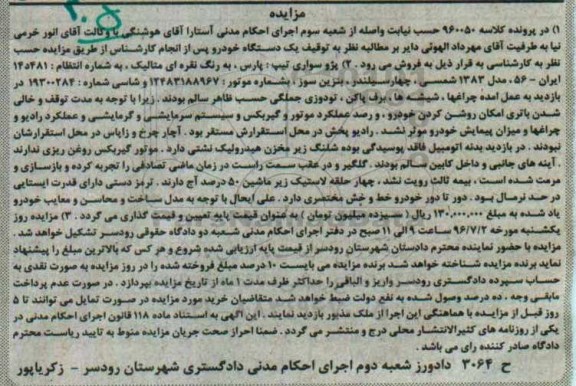 مزایده
۱) در پرونده کلاسه ۹۶۰۰۵۰ حسب نیابت واصله از شعبه سوم اجرای احکام مدنی آستارا آقای هوشنگی با وکالت آقای انور خرمی
نیا به طرفیت آقای مهرداد الهوتی دایر بر مطالبه نظر به توقیف یک دستگاه خودرو پس از انجام کارشناس از طریق مزایده حسب
نظر به کارشناسی به قرار ذیل به فروش می رود . ۲) پژو سواری تیپ : پارس ، به رنگ نقره ای متالیک ، به شماره انتظام : ۱۴د۴۸۱
ایران – ۵۶، مدل ۱۳۸۳ شمسی ، چهار سیلندر ، بنزین سوز ، بشماره موتور : ۱۲۴۸۳۱۸۸۹۶۷ و شاسی شماره : ۱۹۳۰۰۲۸۴ در
بازدید به عمل آمده چراغها ، شیشه ها ، برف پاکن ، تودوزی جملگی حسب ظاهر سالم بودند . زیرا با توجه به مدت توقف و خالی
شدن باتری امکان روشن کردن خودرو ، و رصد عملکرد موتور و گیربکس و سیستم سرمایشی و گرمایشی و عملکرد رادیو و
چراغها و میزان پیمایش خودرو موثر نشد . رادیو پخش در محل استقرارش مستقر بود . آچار چرخ و زاپاس در محل استقرارشان
نبودند . در بازدید بدنه اتومبیل فاقد پوسیدگی بوده شلنگ زیر مخزن هیدرولیک نشتی دارد . موتور گیربکس روغن ریزی ندارند
. آینه های جانبی و داخل کابین سالم بودند . گلگیر و در عقب سمت راست در زمان ماضی تصادفی را تجربه کرده و بازسازی و
مرمت شده است ، بیمه ثالث رویت نشد ، چهار حلقه لاستیک زیر ماشین ۵۰ درصد آج دارند . ترمز دستی دارای قدرت ایستایی
در حد نرمال بود . دور تا دور خودرو خط و خش مختصری دارد . علی ایحال با توجه به مدل ساخت و محاسن و معایب خودرو
یاد شده به مبلغ ۱۳۰,۰۰۰,۰۰۰ ریال ( سیزده میلیون تومان ) به عنوان قیمت پایه تعیین و قیمت گذاری می گردد . ۳) مزایده روز
یکشنبه مورخه ۹۶/۷/۲ ساعت ۹ الی ۱۱ صبح در دفتر اجرای احکام مدنی شعبه دو دادگاه حقوقی رودسر تشکیل خواهد شد .
مزایده با حضور نماینده محترم دادستان شهرستان رودسر از قیمت پایه ارزیابی شده شروع و هر کس که بالاترین مبلغ را پیشنهاد
نماید برنده مزایده شناخته خواهد شد برنده مزایده می بایست ۱۰ درصد مبلغ فروخته شده را در روز مزایده به صورت نقدی به
حساب سپرده دادگستری رودسر واریز و الباقی را حداکثر ظرف مدت ۱ ماه از تاریخ مزایده بپردازد . در صورت عدم پرداخت
مابقی وجه ، ده درصد وصول شده به نفع دولت ضبط خواهد شد متقاضیان خرید مورد مزایده در صورت تمایل می توانند تا ۵
روز قبل از مزایده با هماهنگی این اجرا از ملک مذبور بازدید نمایند . این آگهی به استناد ماده ۱۱۸ قانون اجرای احکام مدنی در
یکی از روزنامه های کثیرالانتشار محلی درج و منتشر می گردد . ضمنا احراز صحت جریان مزایده منوط به تایید ریاست محترم
دادگاه صادر کننده رای می باشد .
ح ۳۰۶۴ دادورز شعبه دوم اجرای احکام مدنی دادگستری شهرستان رودسر – زکریاپور